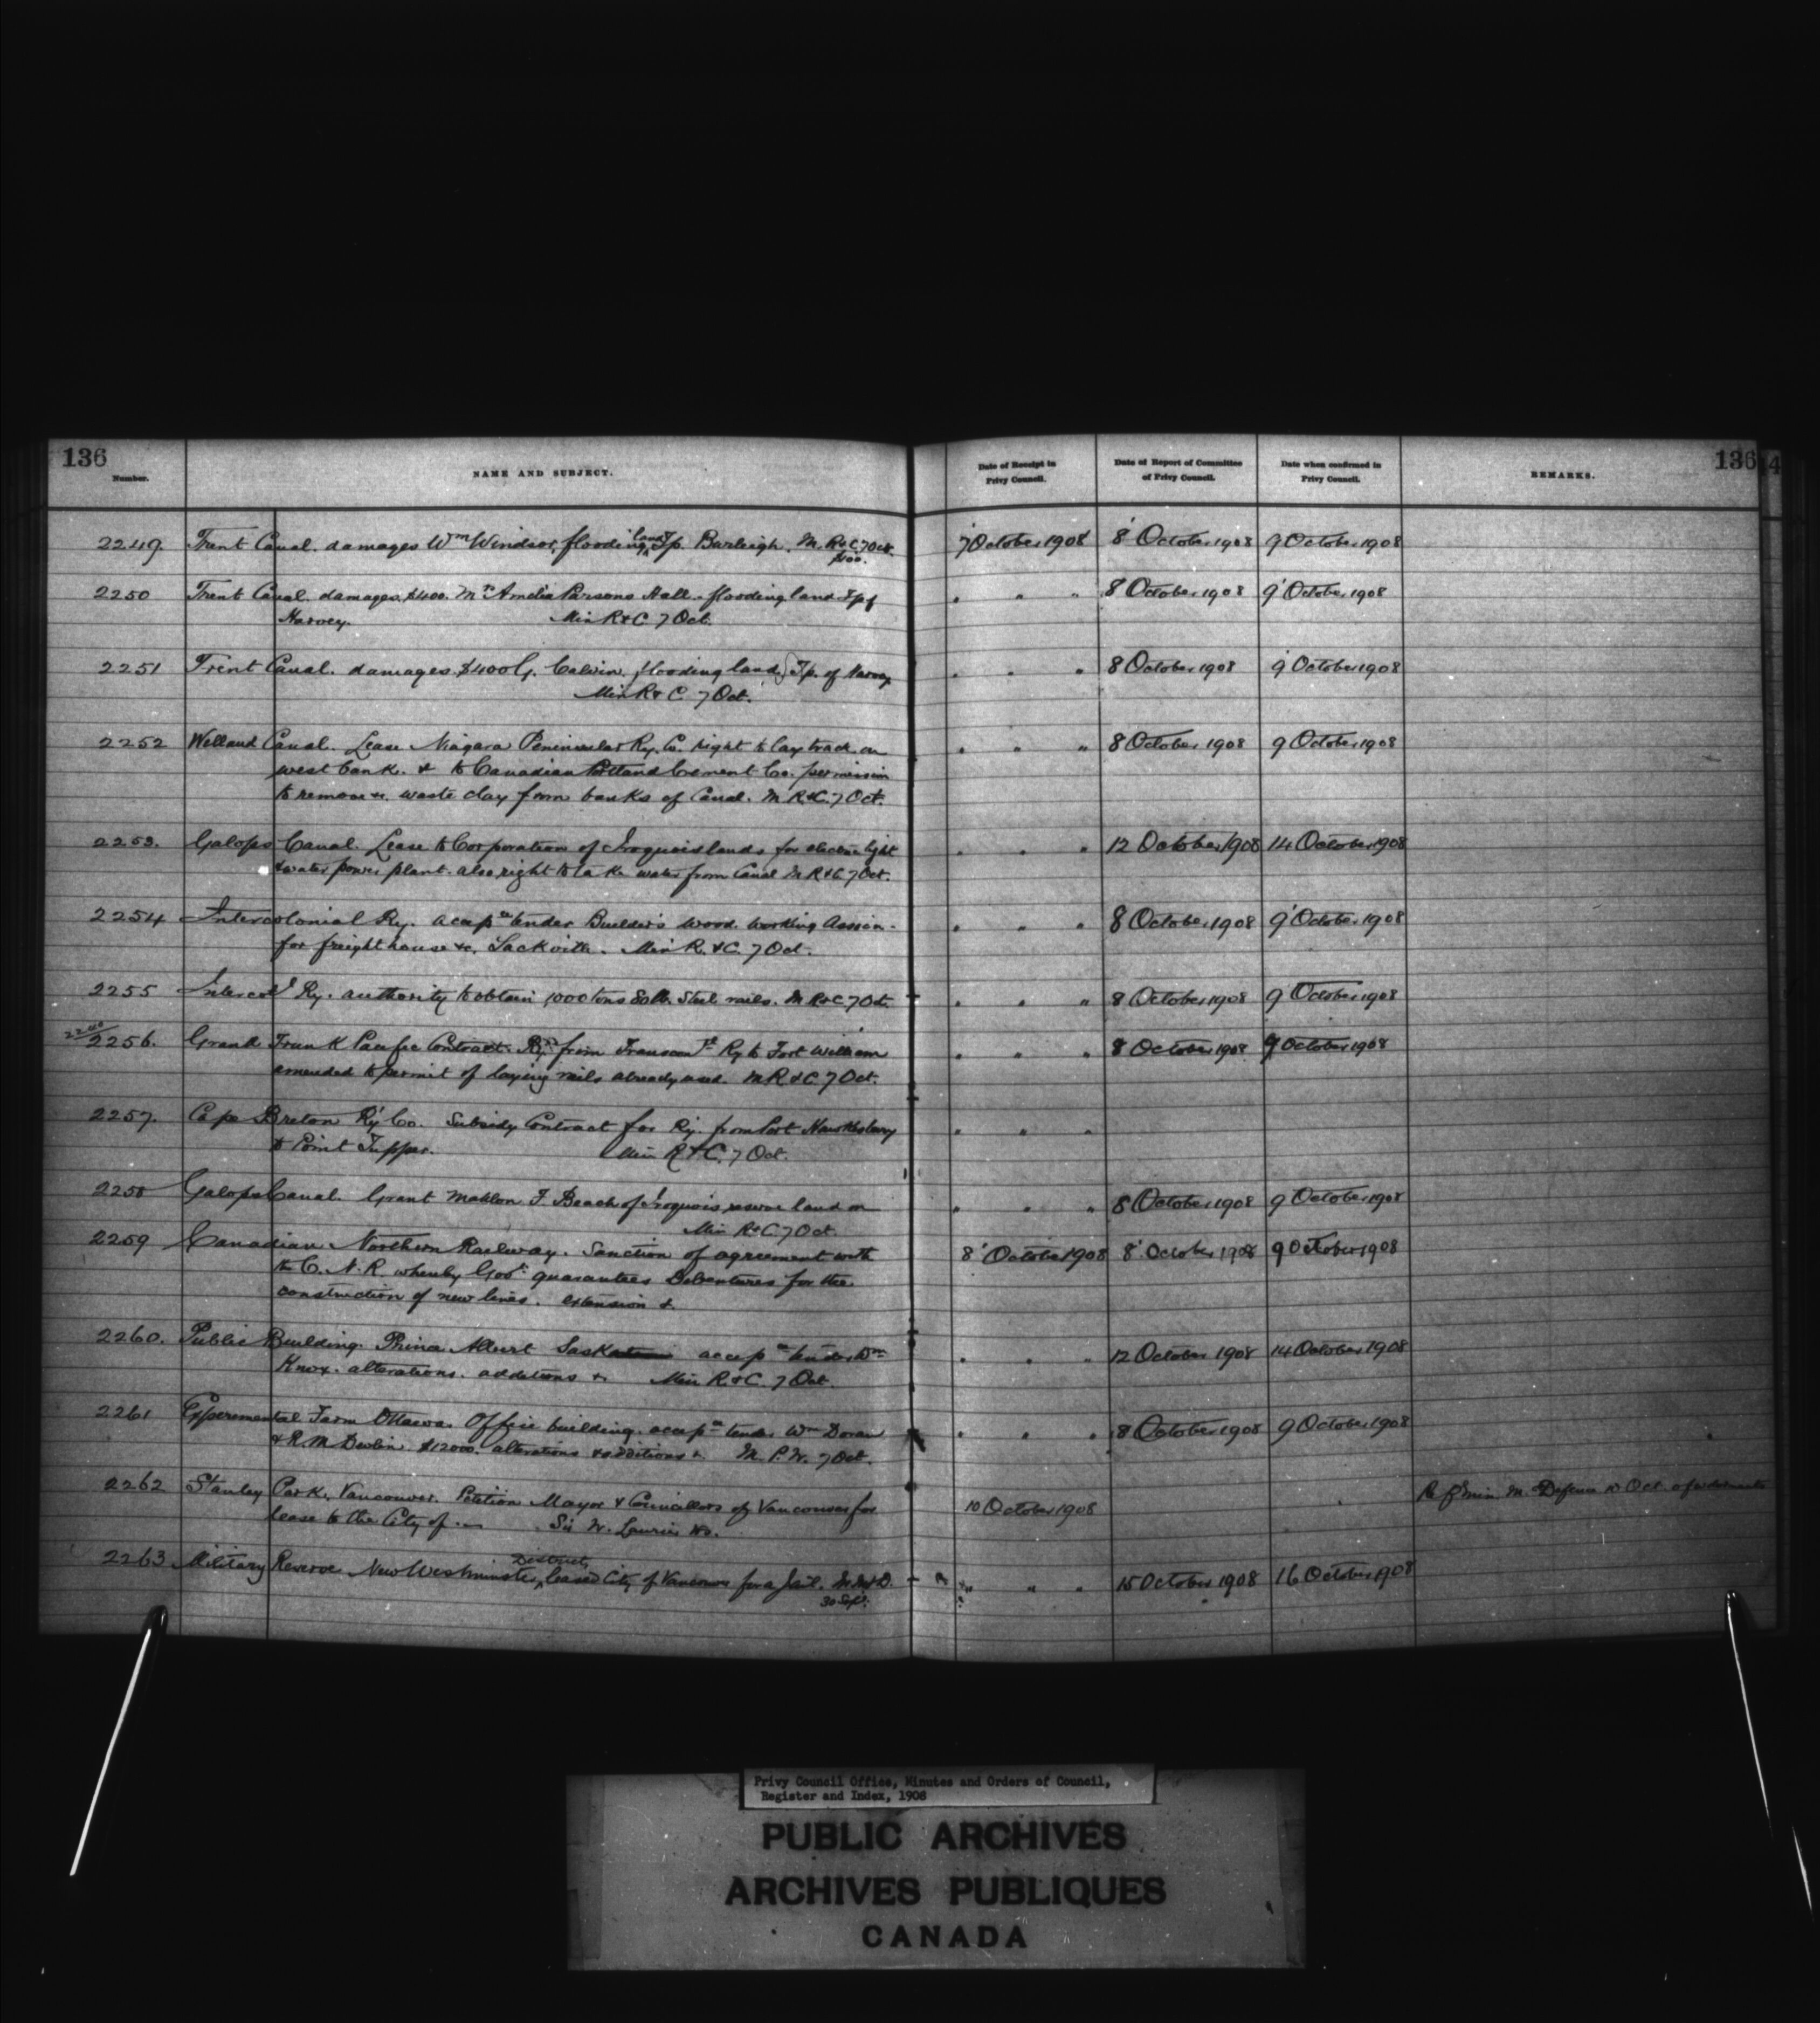 136
Number.
NAME AND SUBJECT.
Date of Receipt in
Privy Council.
Date of Report of Committee
of Privy Council.
Date when confirmed in
Privy Council.
REMARKS.
136
2249. Trent Canal. damages Wm Windsor, flooding land Tp. Burleigh. M. R&C. 7 Oct. 7 October 1908 8 October 1908 9 October 1908
$100.
2250 Trent Canal. damages $400. Mrs Amelia Parsons Hall - flooding land Tp of " " " 8 October 1908 9 October 1908
Harvey. Min R&C 7 Oct.
2251 Trent Canal. damages $400 G. Calvin. flooding land, Tp. of Harvey " " " 8 October 1908 9 October 1908
Min R & C. 7 Oct.
2252 Welland Canal. Lease Niagara Peninsular Ry. Co. right to lay track on " " " 8 October 1908 9 October 1908
west bank. & to Canadian Portland Cement Co. permission
to remove &c. waste clay from banks of Canal. M R&C. 7 Oct.
2253. Galops Canal. Lease to Corporation of Iroquois lands for electric light " " " 12 October 1908 14 October 1908
& water power plant. also right to take water from Canal M R&C 7 Oct.
2254 Intercolonial Ry. accepce tender Builders Wood. Working Assocn. " " " 8 October 1908 9 October 1908
for freight house &c, Sackville. Min R. & C. 7 Oct.
2255 Intercol Ry. authority to obtain 1000 tons 80 lb. Steel rails. M R&C 7 Oct. " " " 8 October 1908 9 October 1908
2240
2256. Grand Trunk Pacific Contract. Ry. from Transcontl Ry to Fort William " " " 8 October 1908 9 October 1908
amended to permit of laying rails already used. M R & C 7 Oct.
2257. Cape Breton Ry Co. Subsidy Contract for Ry. from Port Hawkesbury " " "
to Point Tupper. Min R & C. 7 Oct.
2258 Galops Canal. Grant Mahlon F. Beach of Iroquois reserve land on " " " 8 October 1908 9 October 1908
Min R&C. 7 Oct.
2259 Canadian Northern Railway. Sanction of agreement with 8 October 1908 8 October 1908 9 October 1908
the C. N. R. whereby Govt guarantees Debentures for the
construction of new lines. extension &
2260. Public Building. Prince Albert Sask accepce tender Wm " " " 12 October 1908 14 October 1908
Knox. alterations. additions & Min R. & C. 7 Oct.
2261 Experimental Farm Ottawa. Office building. accepce tender Wm Doran " " " 8 October 1908 9 October 1908
& R. M Devlin. $12000. alterations & additions &. M. P. W. 7 Oct.
2262 Stanley Park, Vancouver. Petition Mayor & Councillors of Vancouver for 10 October 1908
lease to the City of. Sir W. Laurier
M. Defence 10 Oct.
2263 Military Reserve New Westminster District, leased City of Vancouver for a Jail. M M&D. " " " 15 October 1908 16 October 1908
30 Sept.
Privy Council Office, Minutes and Orders of Council,
Register and Index, 1908
PUBLIC ARCHIVES
ARCHIVES PUBLIQUES
CANADA